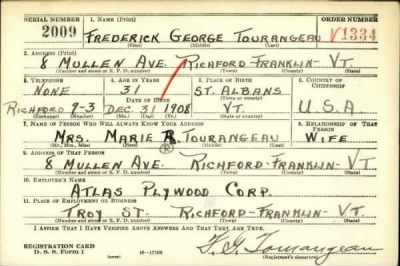 SERIAL NUMBER 1. NAME (Print) ORDER NUMBER
2009 FREDERICK GEORGE TOURANGEAU V1334
(First) (Middle) (Last)
2. ADDRESS (Print)
8 MULLEN AVE. RICHFORD-FRANKLIN-VT.
(Number and street or R. F. D. number) (Town) (County) (State)
3. TELEPHONE 4. AGE IN YEARS 5. PLACE OF BIRTH 6. COUNTRY OF CITIZENSHIP
NONE 31 ST. ALBANS
DATE OF BIRTH (Town or county)
RICHFORD 9-3 DEC. 31 1908 VT. U.S.A
(Exchange) (Number) (Mo.) (Day) (Yr.) (State or country)
7. NAME OF PERSON WHO WILL ALWAYS KNOW YOUR ADDRESS 8. RELATIONSHIP OF THAT PERSON
MRS. MARIE R. TOURANGEAU WIFE
(Mr., Mrs., Miss) (First) (Middle) (Last)
9. ADDRESS OF THAT PERSON
8 MULLEN AVE. RICHFORD-FRANKLIN-VT
(Number and street or R. F. D. number) (Town) (County) (State)
10. EMPLOYER'S NAME
ATLAS PLYWOOD CORP.
11. PLACE OF EMPLOYMENT OR BUSINESS
TROY ST. RICHFORD-FRANKLIN-VT.
(Number and street or R. F. D. number) (Town) (County) (State)
I AFFIRM THAT I HAVE VERIFIED ABOVE ANSWERS AND THAT THEY ARE TRUE.
REGISTRATION CARD
D. S. S. FORM 1 (over) F. G. Tourangeau
(Registrant's signature)